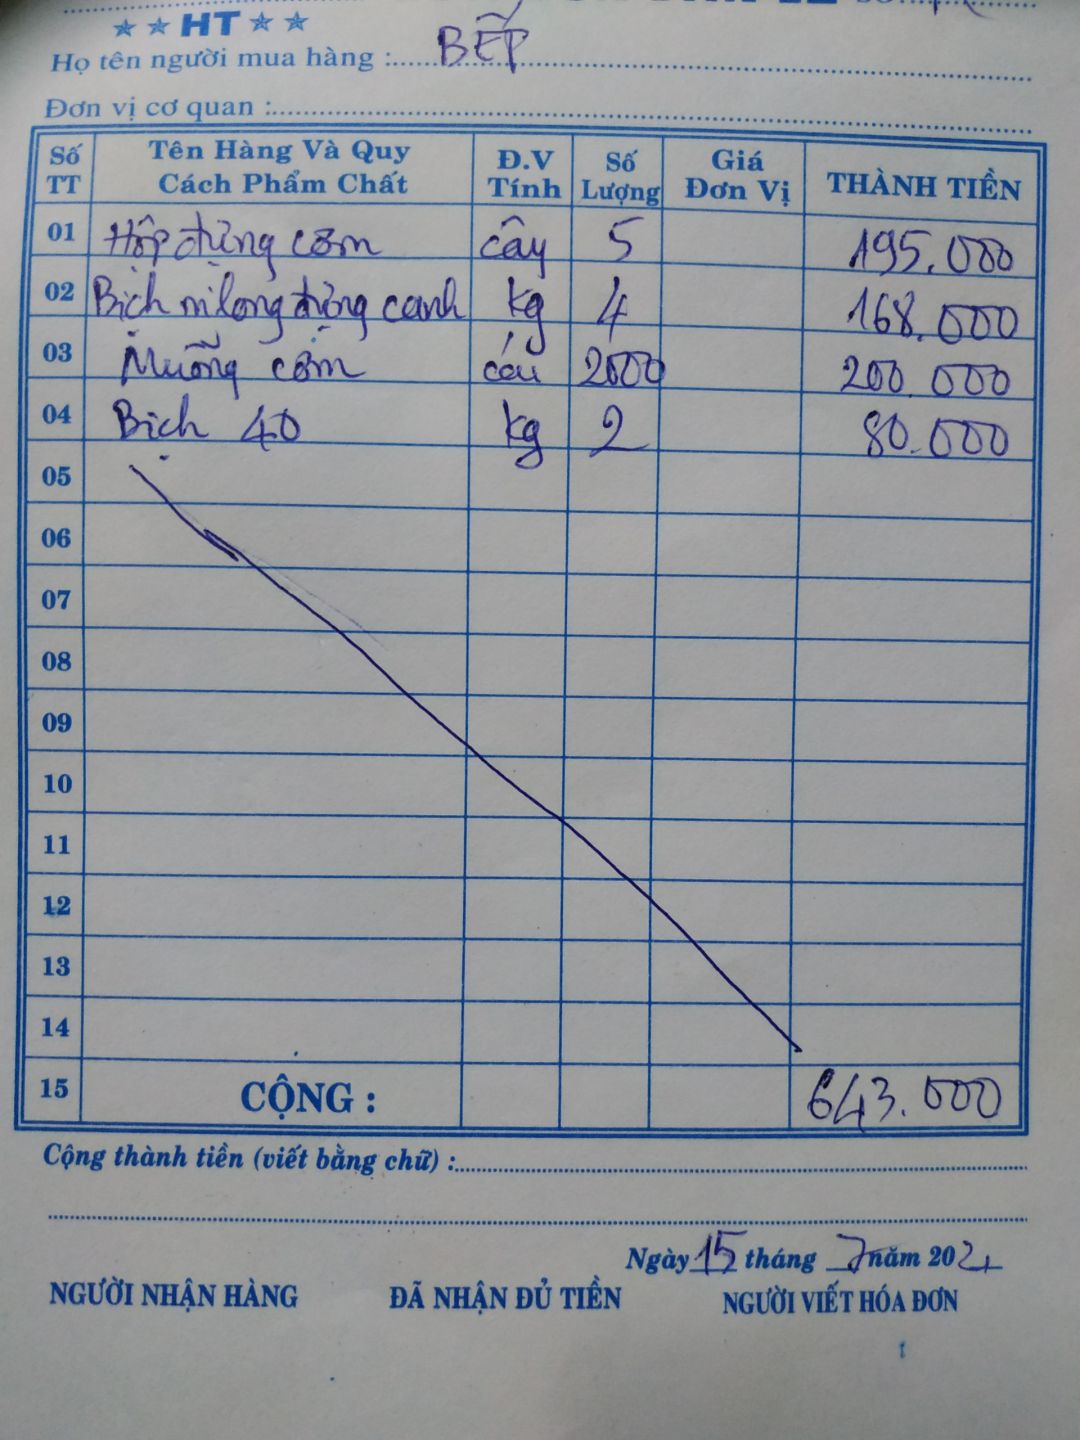 ★ ★ HT ★ ★
Họ tên người mua hàng : BẾP
Đơn vị cơ quan :
Số TT Tên Hàng Và Quy Cách Phẩm Chất Đ.V Tính Số Lượng Giá Đơn Vị THÀNH TIỀN
01 Hộp đựng cơm cây 5 195.000
02 Bịch nilong đựng canh kg 4 168.000
03 Muỗng cơm cái 2000 200.000
04 Bịch 40 kg 2 80.000
05
06
07
08
09
10
11
12
13
14
15 CỘNG : 643.000
Cộng thành tiền (viết bằng chữ) :
Ngày 15 tháng 7 năm 2021
NGƯỜI NHẬN HÀNG ĐÃ NHẬN ĐỦ TIỀN NGƯỜI VIẾT HÓA ĐƠN